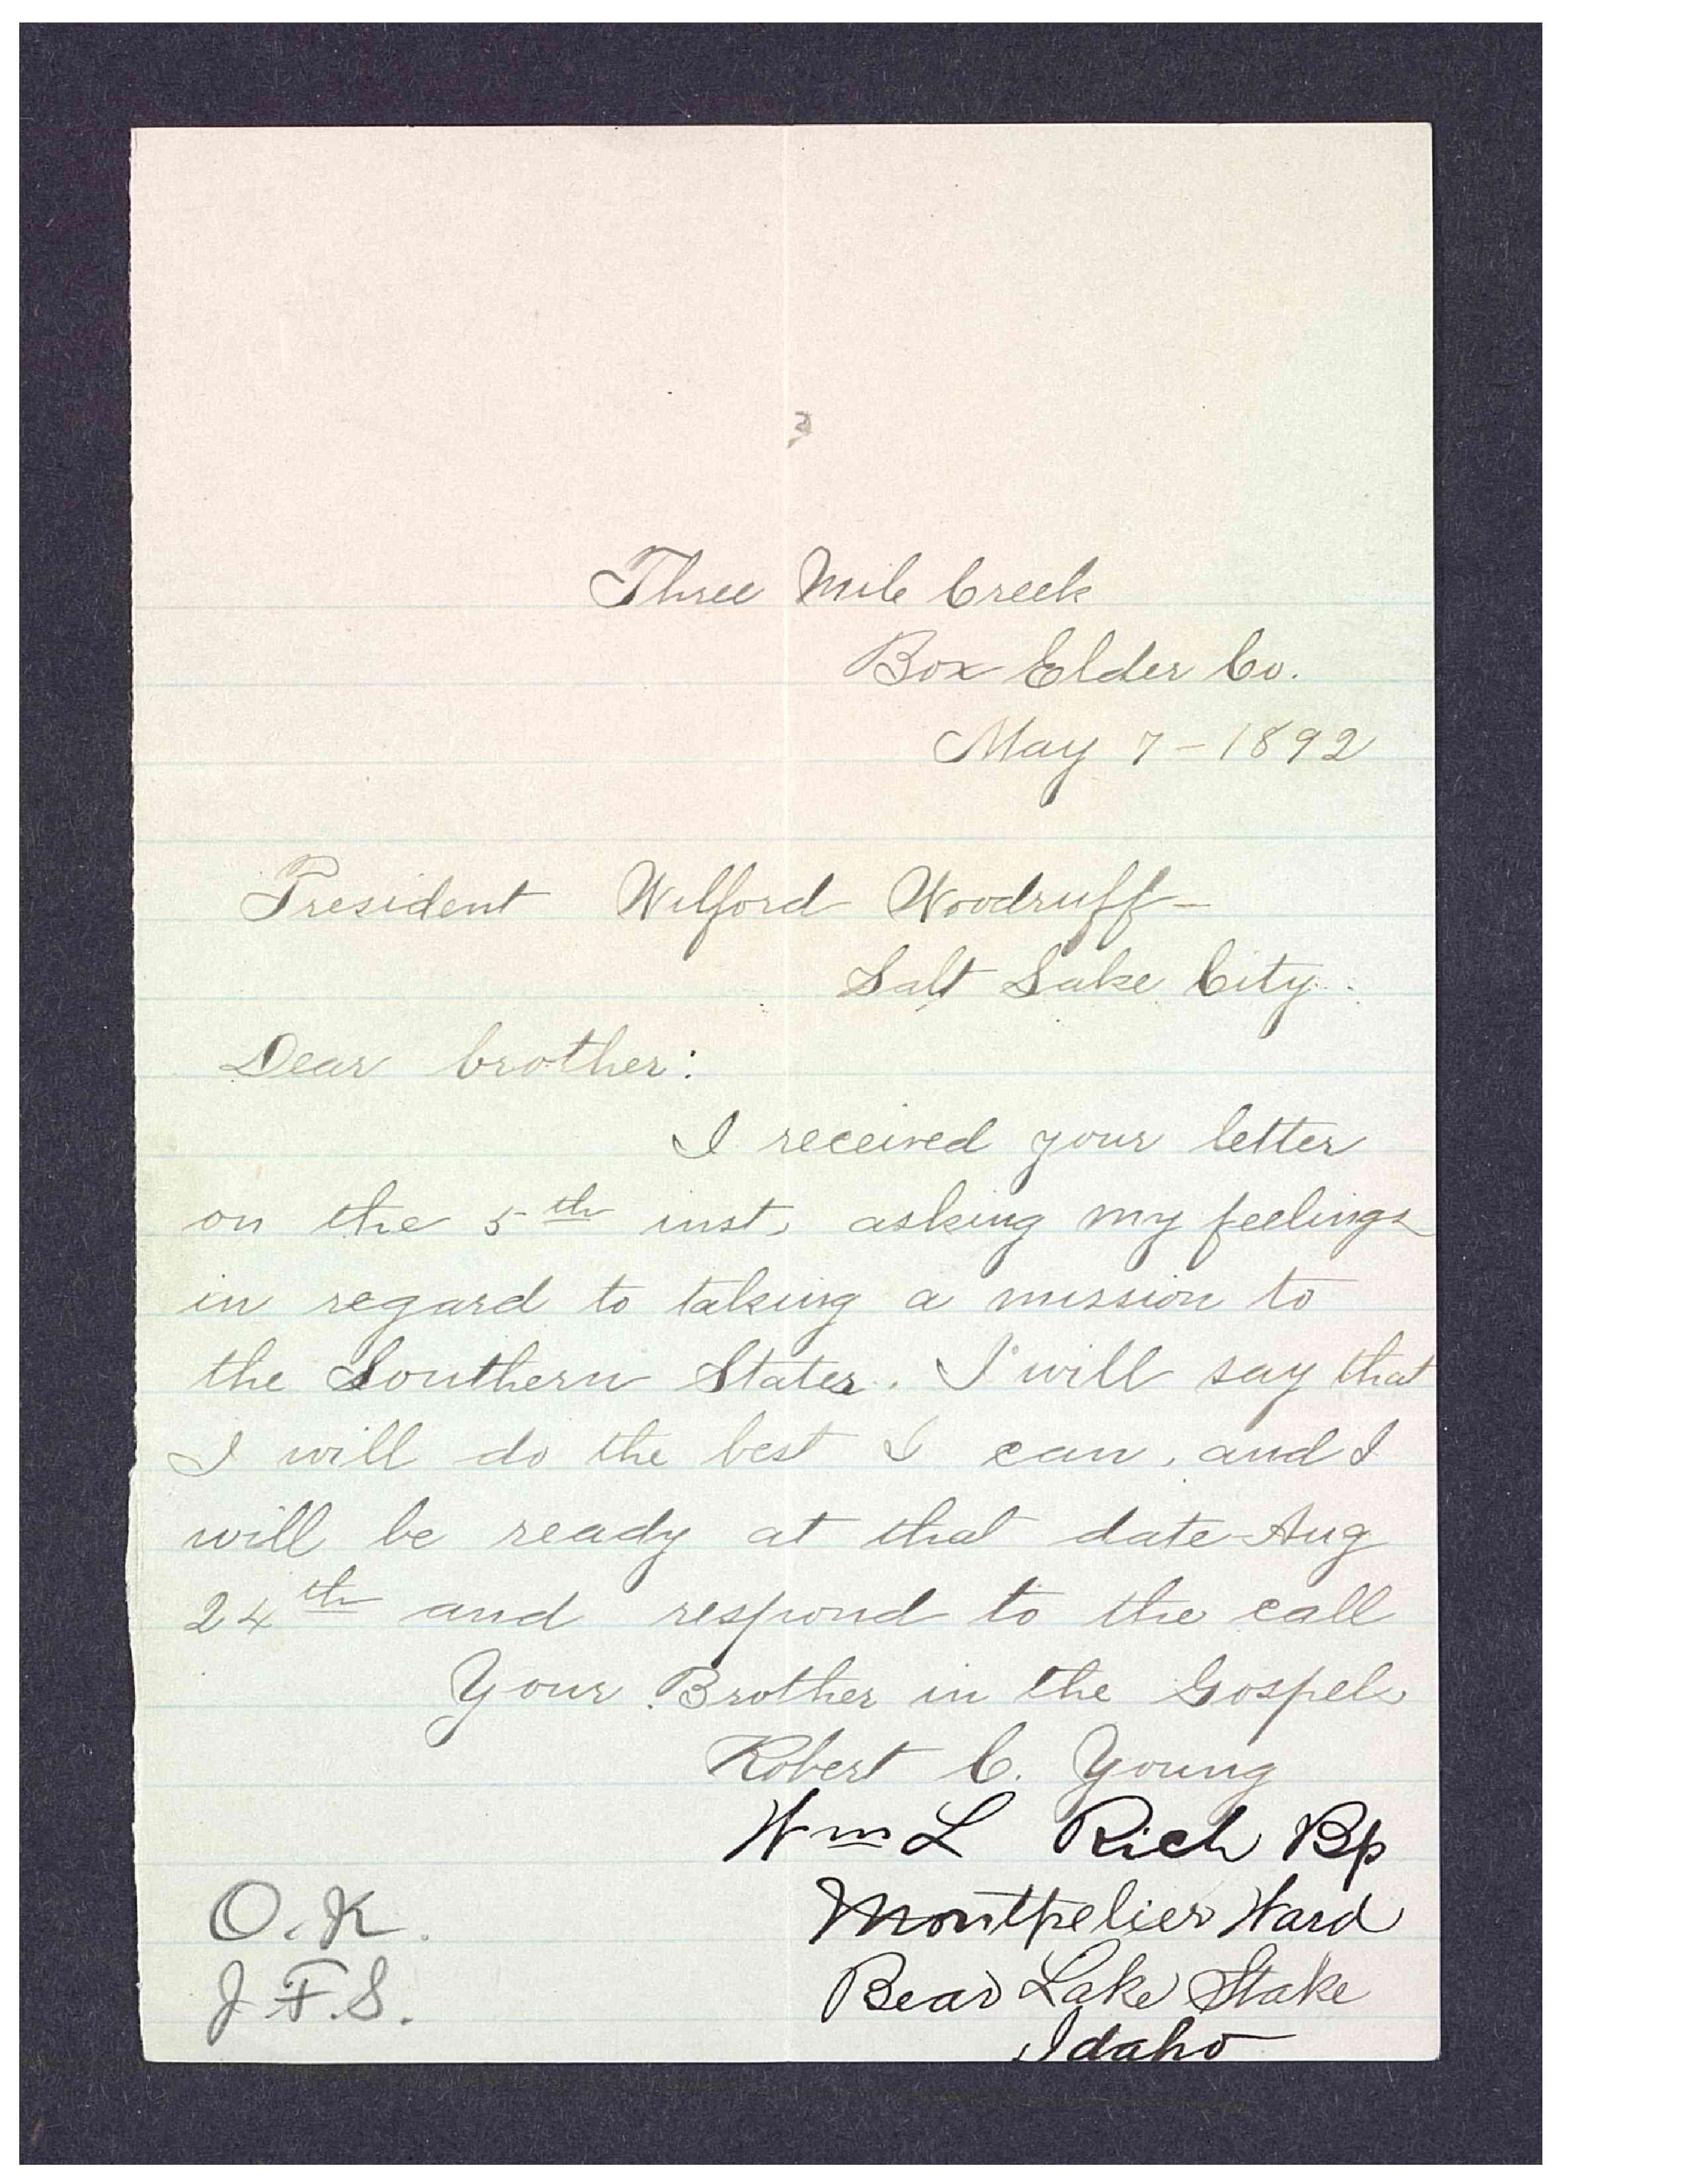 Three Mile Creek
Box Elder Co.
May 7 - 1892
President Wilford Woodruff -
Salt Lake City.
Dear brother:
I received your letter
on the 5th inst, asking my feelings
in regard to taking a mission to
the Southern States. I will say that
I will do the best I can, and I
will be ready at that date Aug
24th and respond to the call
Your Brother in the Gospel
Robert C. Young
Wm L Rich Bp
Montpelier Ward
Bear Lake Stake
Idaho
O.K.
J.F.S.